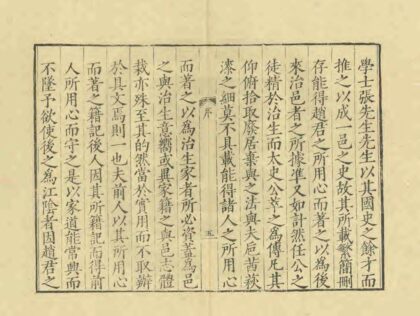 學士張先生先生以其國史之餘才而
推之以成一邑之史故其所載繁簡刪
存能得趙君之所用心而著之以為後
來治邑者之所據準又如計然任公之
徒精於治生而太史公萃之為傳凡其
仰俯拾取廢居棄與之法與夫巵茜萩
漆之細莫不具載能得諸人之所用心
序
五
而著之以為治生家者所必資蓋為邑
之與治生意嚮或異家籍之與邑志體
裁亦殊至其的然當於實用而不取辦
於具文焉則一也夫前人以其所用心
而著之籍記後人因其所籍記而得前
人所用心而守之是以家道能常興而
不墜予欲使後之為江陰者因趙君之